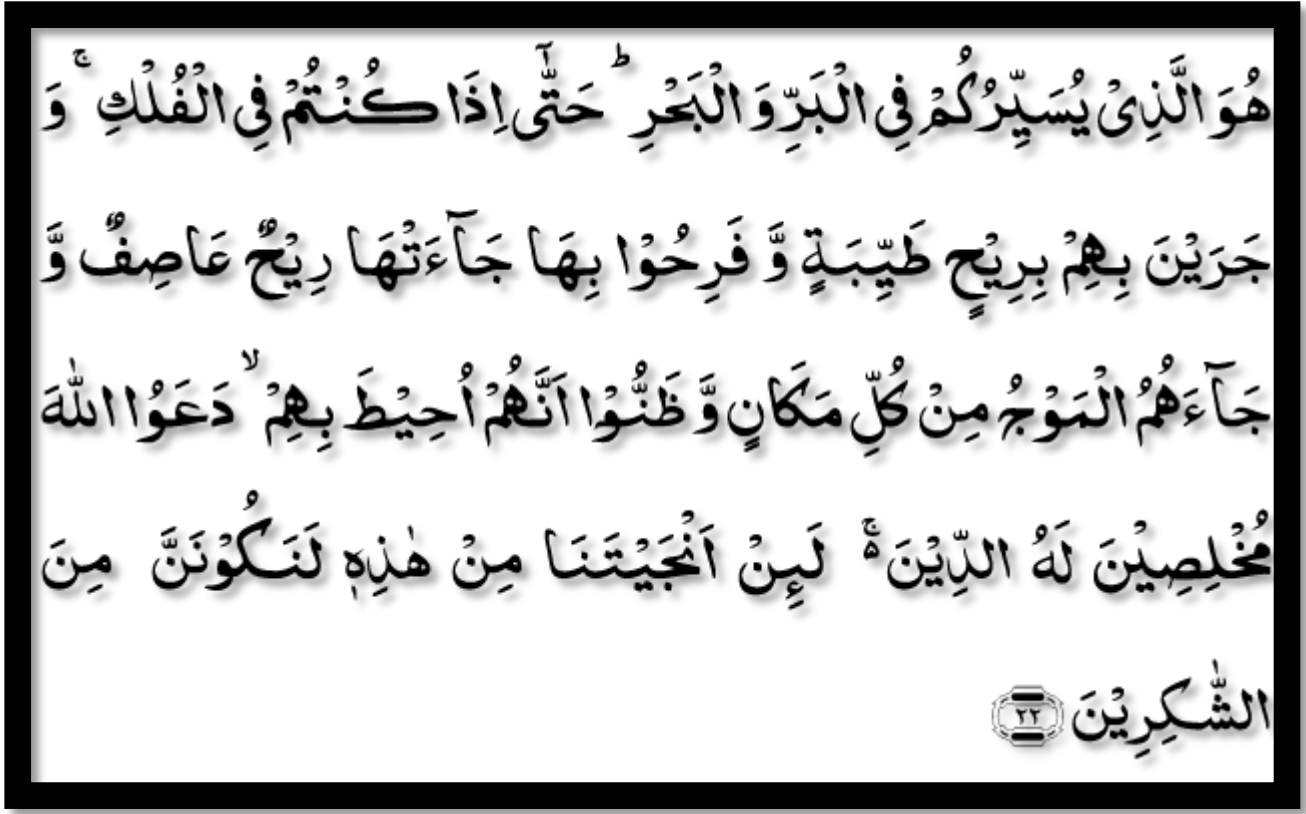 هُوَ الَّذِىْ يُسَيِّرُكُمْ فِى الْبَرِّ وَ الْبَحْرِ ؕ حَتّٰۤى اِذَا كُنْتُمْ فِى الْفُلْكِ ۚ وَ
جَرَيْنَ بِهِمْ بِرِيْحٍ طَيِّبَةٍ وَّ فَرِحُوْا بِهَا جَآءَتْهَا رِيْحٌ عَاصِفٌ وَّ
جَآءَهُمُ الْمَوْجُ مِنْ كُلِّ مَكَانٍ وَّ ظَنُّوْا اَنَّهُمْ اُحِيْطَ بِهِمْ ۙ دَعَوُا اللّٰهَ
مُخْلِصِيْنَ لَهُ الدِّيْنَ ۚ۬ لَئِنْ اَنْجَيْتَنَا مِنْ هٰذِهٖ لَنَكُوْنَنَّ مِنَ
الشّٰكِرِيْنَ ٢٢